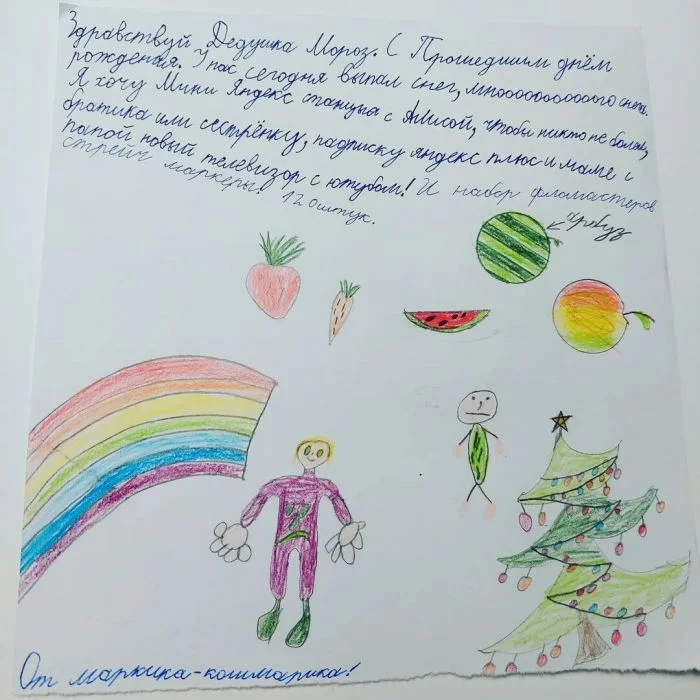 Здравствуй, Дедушка Мороз. С Прошедшим днём
рождения. У нас сегодня выпал снег, мнооооооооооого снега.
Я хочу Мини Яндекс станция с Алисой, чтобы никто не болел,
братика или сестрёнку, падписку яндекс плюс и маме с
папой новый телевизор с ютубом! И набор фломастеров
стрейч маркеры! 120 штук.
Арбуз
От марюика-кошмарика!